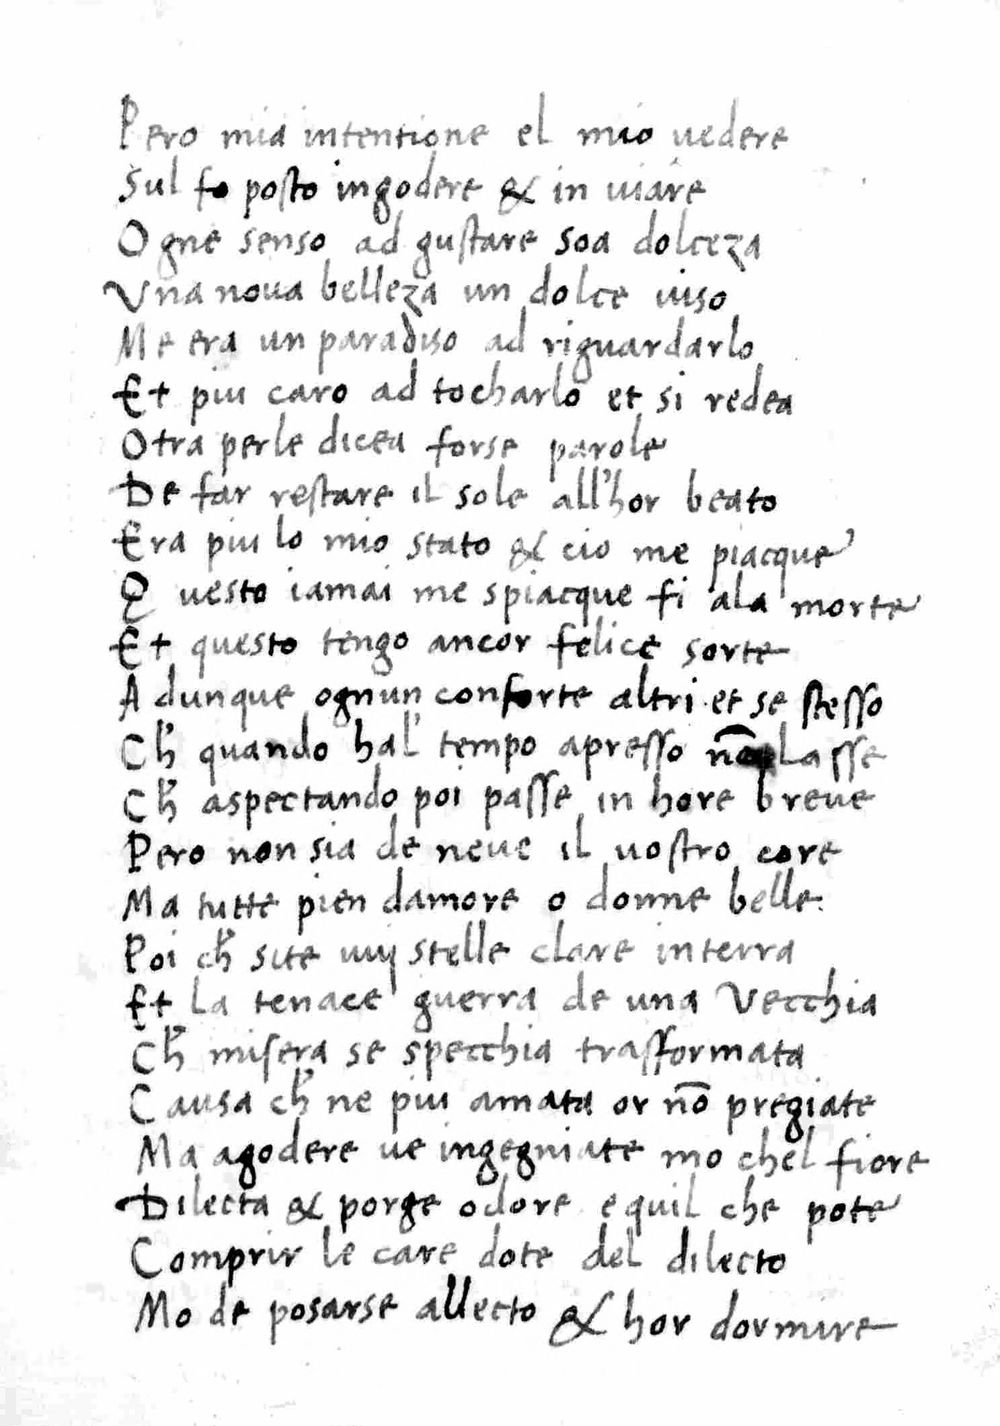 Pero mia intentione el mio uedere
Sul fo posto ingodere & in uiare
Ogne senso ad gustare soa dolceza
Vna noua belleza un dolce uiso
Me era un paradiso ad riguardarlo
Et piu caro ad tocharlo et si redea
Otra perle dicea forse parole
De far restare il sole all'hor beato
Era piu lo mio stato & cio me piacque
Questo iamai me spiacque fi ala morte
Et questo tengo ancor felice sorte
Adunque ognun conforte altri et se stesso
Ch̄ quando hal' tempo apresso nō lasse
Ch̄ aspectando poi passe in hore breue
Pero non sia de neue il uostro core
Ma tutte pien damore o donne belle
Poi ch̄ site uij stelle clare interra
Et la tenace guerra de una Vecchia
Ch̄ misera se specchia trasformata
Causa ch̄ ne piu amata or nō pregiate
Ma agodere ue ingegniate mo chel fiore
Dilecta & porge odore e quil che pote
Comprir le care dote del dilecto
Mo de posarse allecto & hor dormire